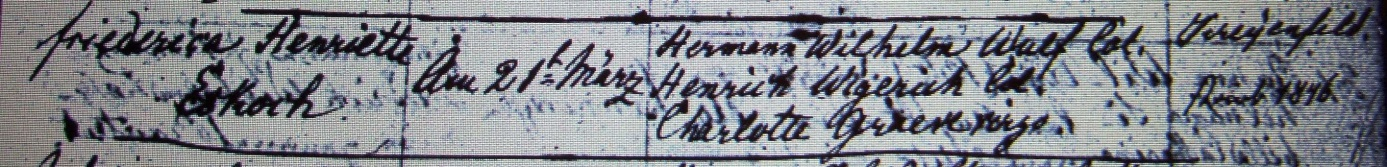 Friederica Henriette
Eskoch.
Am 21t März
Hermann Wilhelm Wulf Col.
Henrich Wigerich Col.
Charlotte virgo.
1846